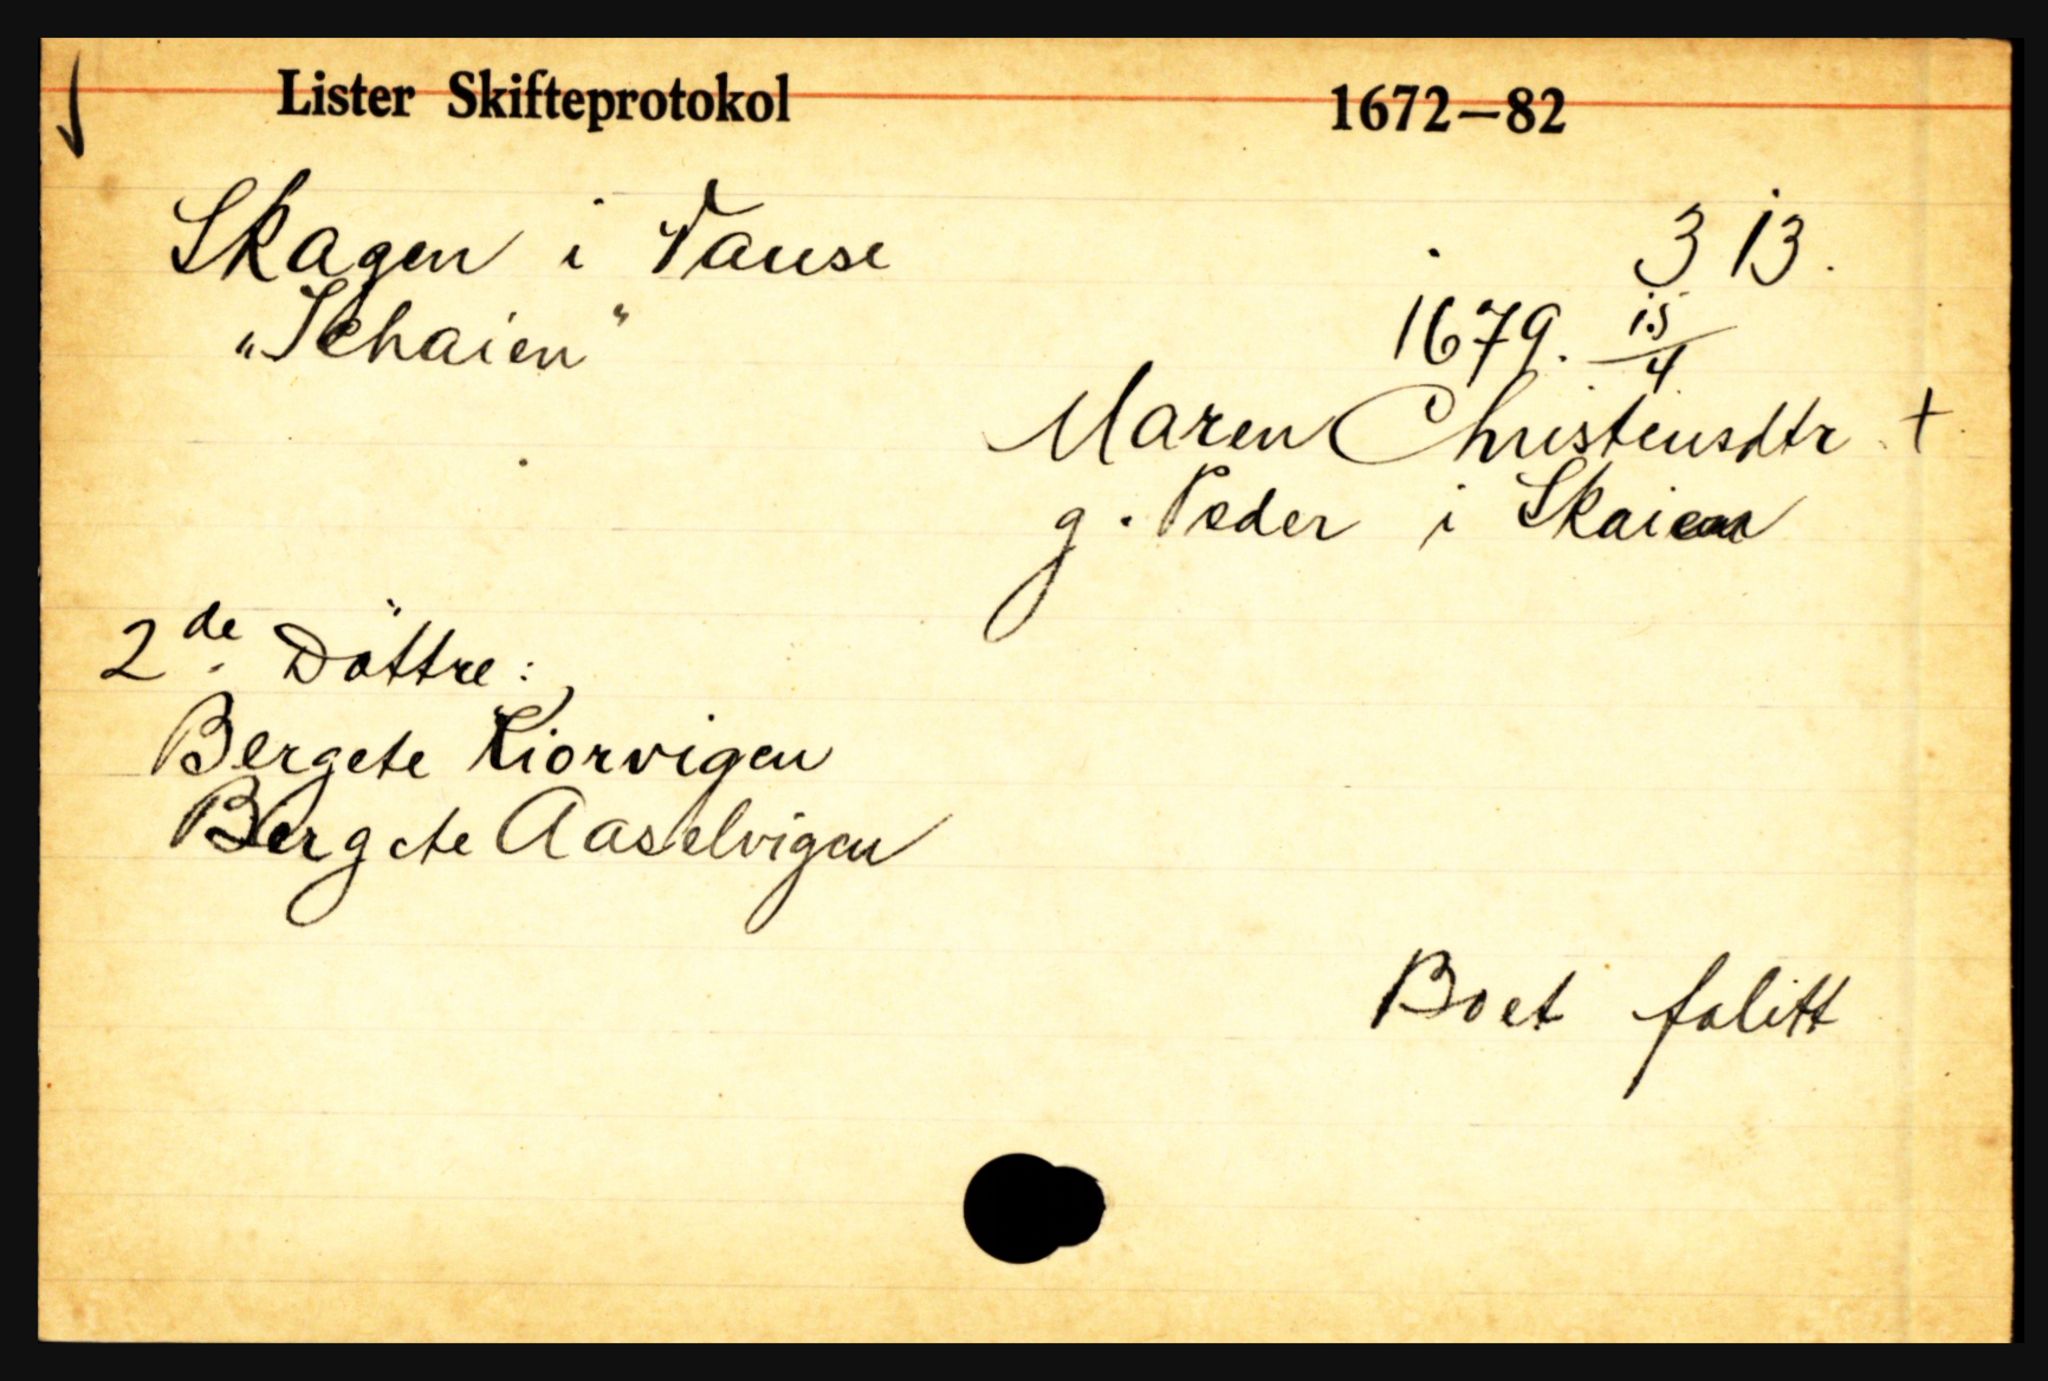 Lister Skifteprotokol 1672-82
Skagen i Vanse 313.
"Schaien" 1679. 15/4
Maren Christensdtr +
g. Peder i Skaien
2de Döttre:
Bergete Kiorvigen
Bergete Aaselvigen
Boet falitt